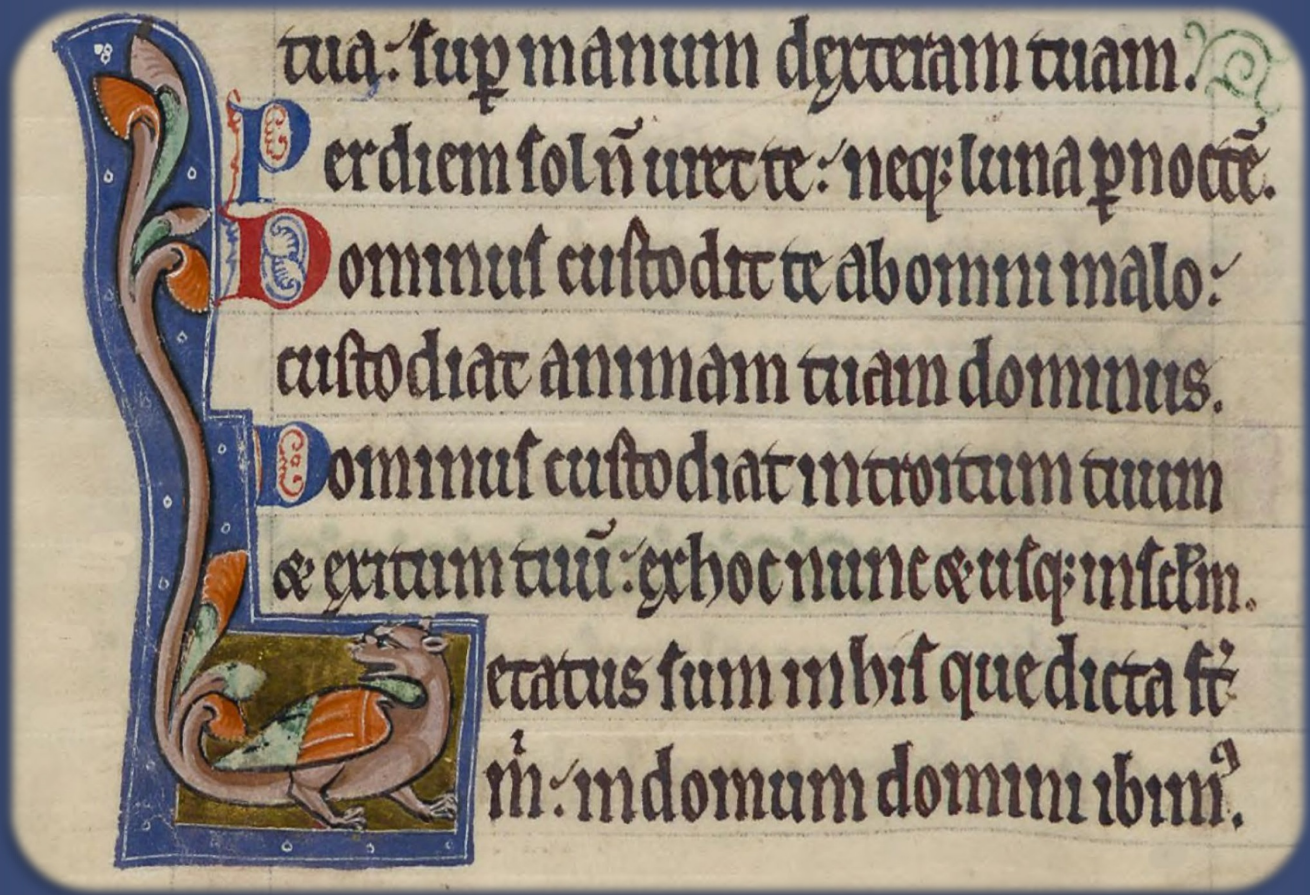 tua: sup manum dexteram tuam.
Per diem sol n̄ uret te: neq; luna p noctē.
Dominus custodit te ab omni malo:
custodiat animam tuam dominus.
Dominus custodiat introitum tuum
& exitum tuū: ex hoc nunc & usq; in sclm.
Letatus sum in his que dicta st
m: in domum domini ibimꝰ.